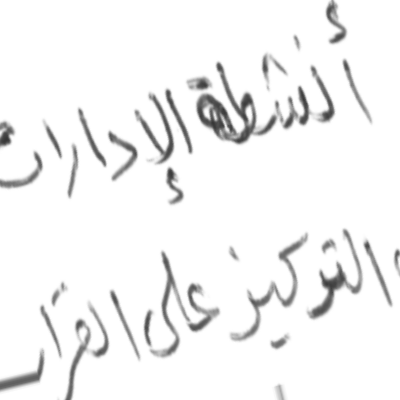 أنشطة الإدارات
التركيز على القرا